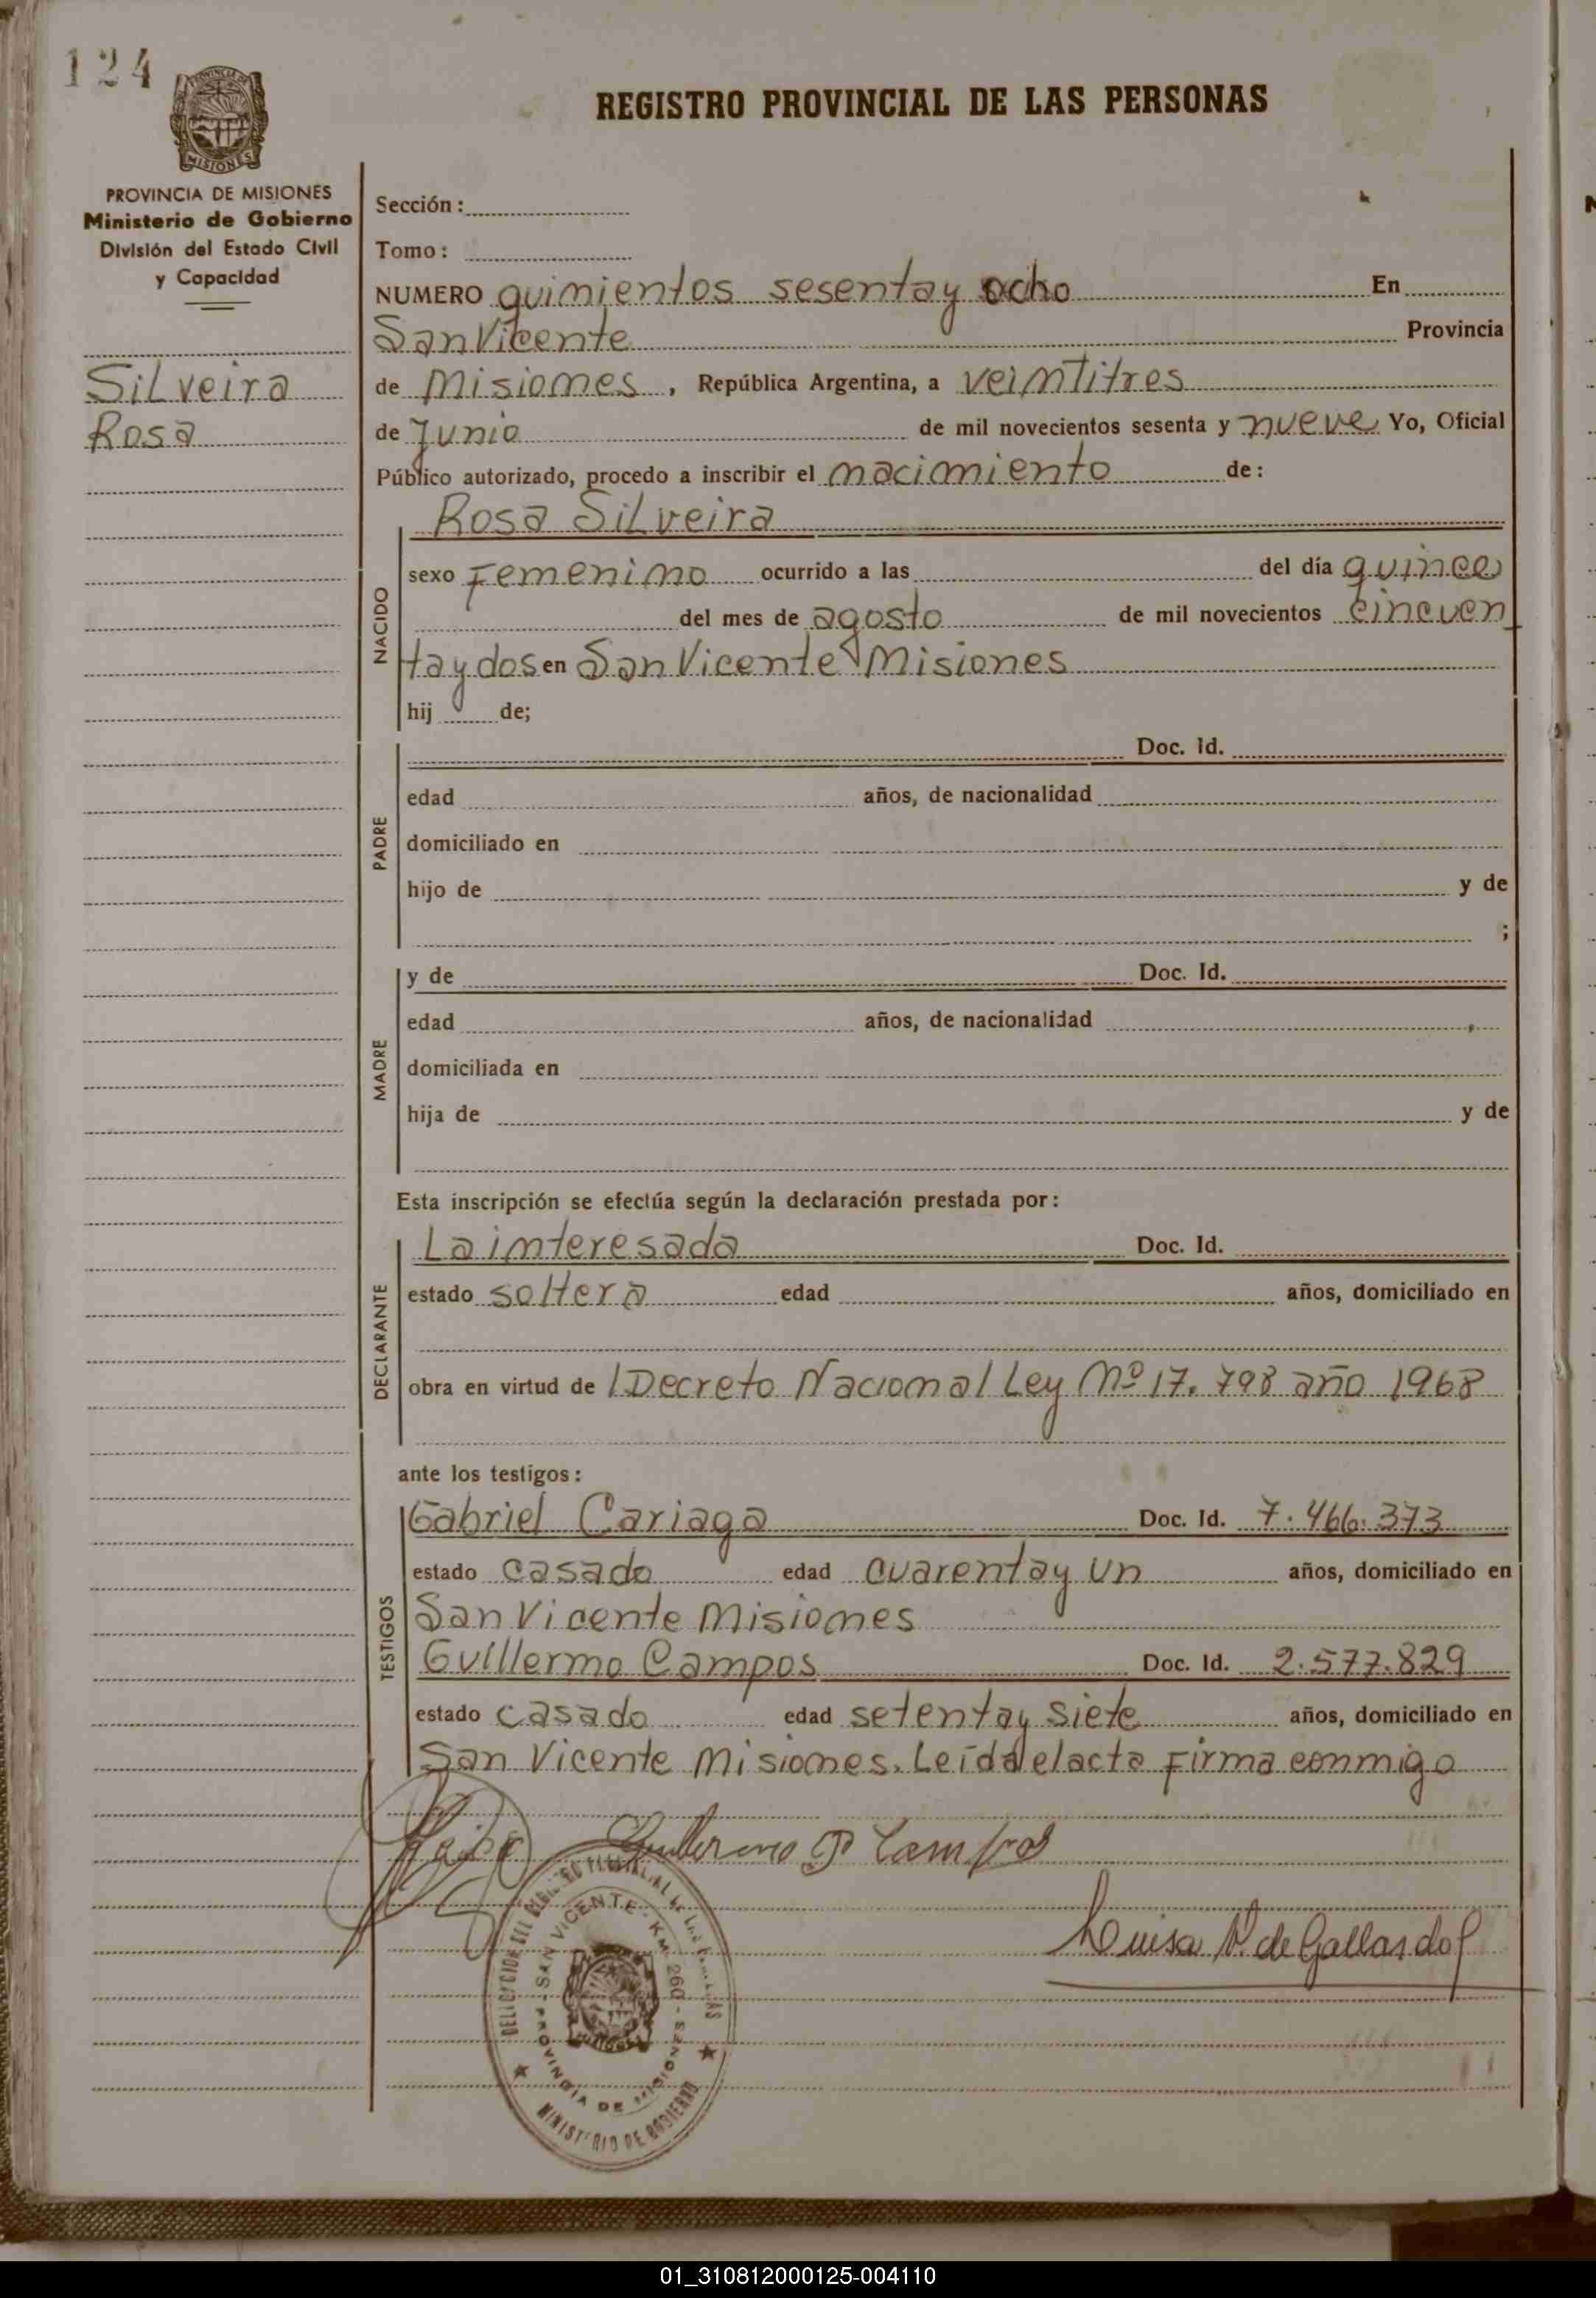 124
REGISTRO PROVINCIAL DE LAS PERSONAS
PROVINCIA DE
MISIONES
PROVINCIA DE MISIONES
Ministerio de Gobierno
División del Estado Civil
y Capacidad
Silveira
Rosa
Sección:
Tomo:
NUMERO quimientos sesentay ocho En
San Vicente Provincia
de Misiomes, República Argentina, a veimtitres
de Junio de mil novecientos sesenta y nueve Yo, Oficial
Público autorizado, procedo a inscribir el macimiento de:
Rosa Silveira
NACIDO
sexo Femenimo ocurrido a las del día quince
del mes de agosto de mil novecientos cincuen
tay dos en San Vicente Misiones
hij de;
PADRE
Doc. Id.
edad años, de nacionalidad
domiciliado en
hijo de y de
;
MADRE
y de Doc. Id.
edad años, de nacionalidad
domiciliada en
hija de y de
Esta inscripción se efectúa según la declaración prestada por:
DECLARANTE
La imteresada Doc. Id.
estado soltera edad años, domiciliado en
obra en virtud de lDecreto Nacional Ley Nº 17.798 año 1968
ante los testigos:
TESTIGOS
Gabriel Cariaga Doc. Id. 7.466.373
estado casado edad cuarentay un años, domiciliado en
San Vicente Misiomes
Guillermo Campos Doc. Id. 2.577.829
estado casado edad setentay siete años, domiciliado en
San Vicente Misiomes. Leída el acta Firma conmigo
Guillermo P Campos
Luisa V. de Gallardo
SAN VICENTE - KM. 260 - PROVINCIA DE MISIONES
MINISTERIO DE GOBIERNO
01_310812000125-004110